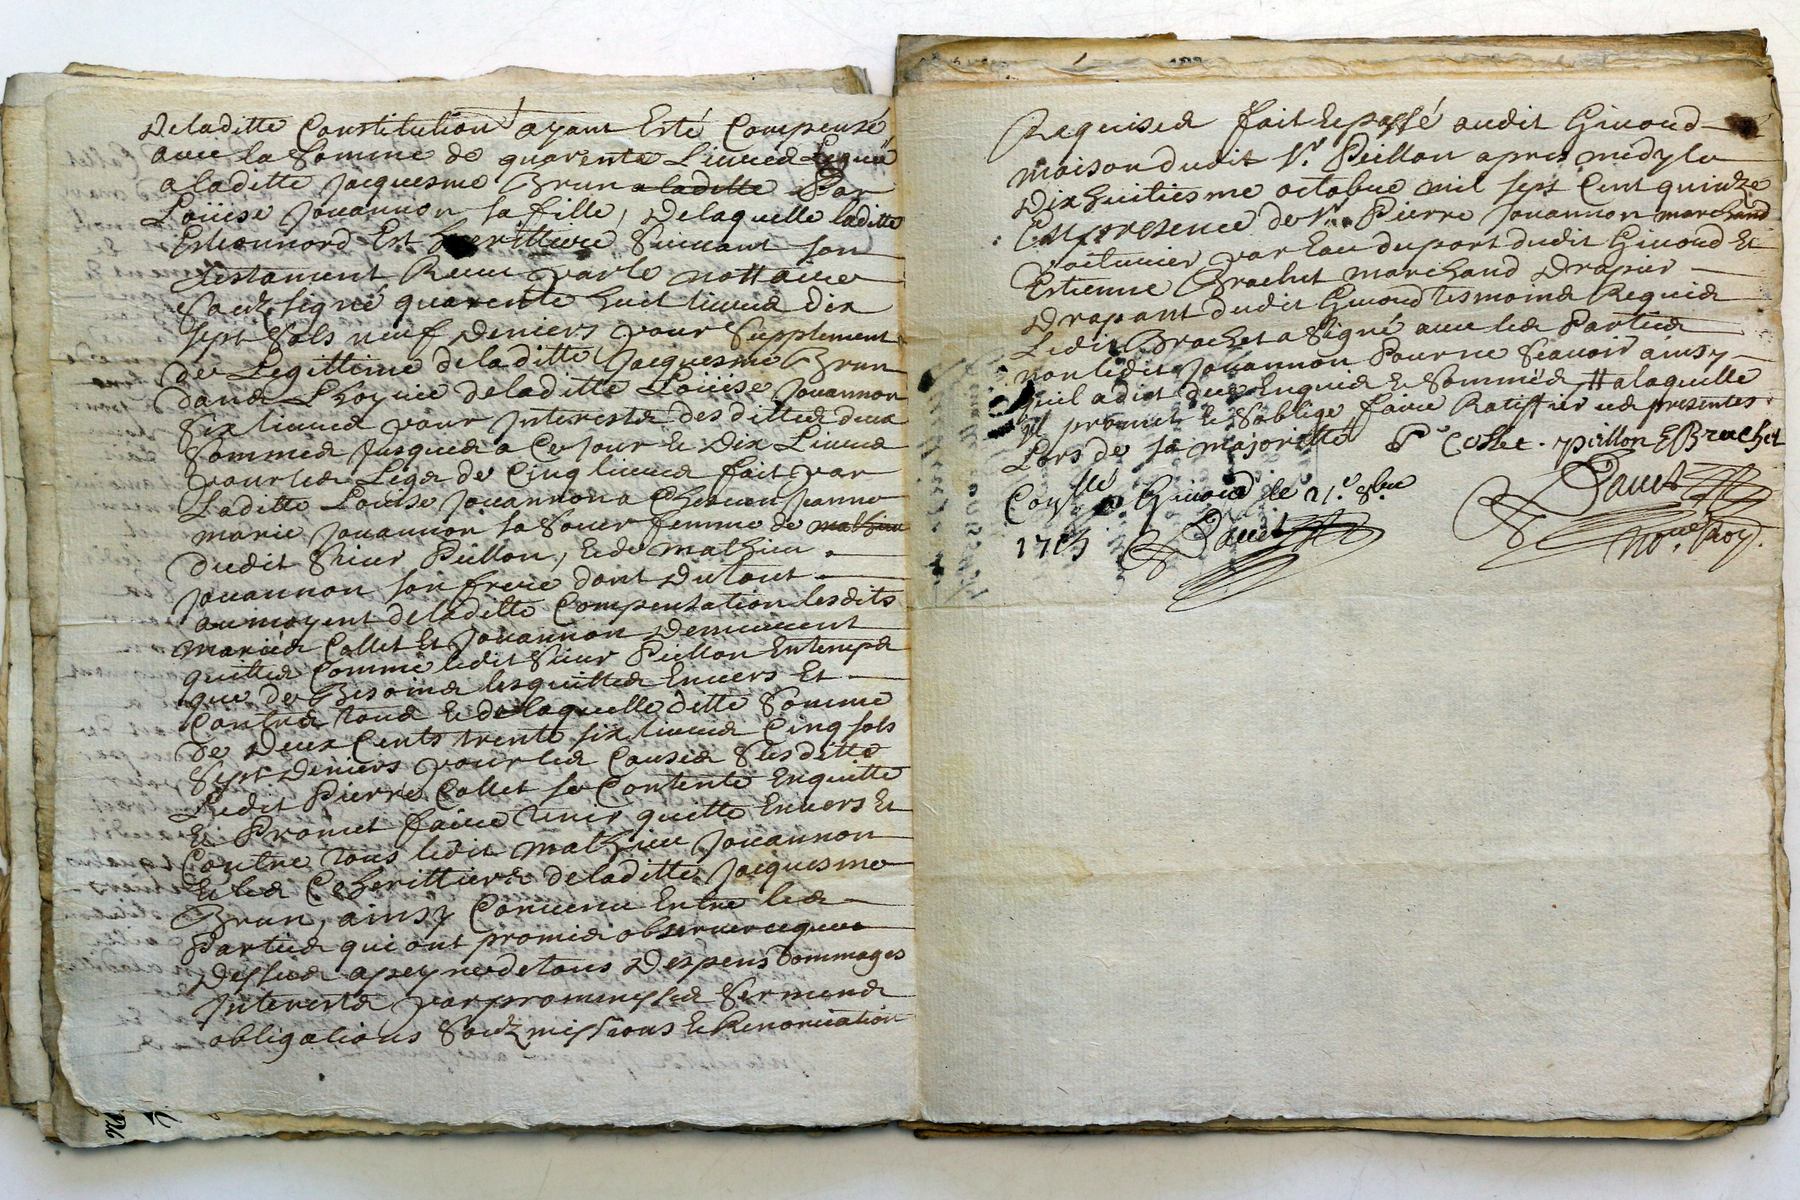 Deladitte Constitution ayant Esté Compensé
avec la Somme de quarente Livres Leguée
a laditte Jacquesme Brun a laditte Par
Loüise Jouannon sa fille, Delaquelle laditte
Est herittiere Suivant son
testament Receu par le nottaire
soubzsigné quarente huit livres dix
sept sols neuf deniers pour Supplement
de Legittime deladitte Jacquesme Brun
dans L'hoyrie deladitte Loüise Jouannon
six livres pour Interests desdittes deux
Sommes Jusques a Ce Jour & Dix Livres
pour les Legs de Cinq livres fait par
Laditte Louise Jouannon a Chacun Jeanne
marie Jouannon sa Soeur femme de mathieu
dudit Sieur Peillon, & de mathieu
Jouannon son frere dont Du tout
au moyent deladitte Compensation lesdits
mariés Collet Et Jouannon Demeurent
quittes Comme ledit Sieur Peillon Entemps
que de Besoins les quittes Envers Et
Contre tous & delaquelle ditte Somme
de Deux Cents trente six livres Cinq sols
Sept Deniers pour les Causes Susditte
Ledit Pierre Collet se Contente Enquitte
& Promet faire tenir quitte Envers Et
Contre tous ledit mathieu Jouannon
& les Coherittiers deladitte Jacquesme
Brun, ainsy Convenu Entre les
Parties qui ont promis observer ceque
Dessus a peyne de tous Despens Dommages
Interests par promesses Serments
obligations Soubzmissions & Renonciation
Requises fait & passé audit Givord
maison dudit Sr. Peillon apres midy le
Dix huitiesme octobre mil sept Cent quinze
En presence de Sr. Pierre Jouannon marchand
voiturier par Eau du port dudit Givord Et
Estienne Brachet marchand Drapier
Drapant dudit Givord tesmoins Requis
Ledit Brachet a Signé avec les Parties
non ledit Jouannon Pour ne Scavoir ainsy
quil a dit de ce Enquis & Sommés # a laquelle
Il promet & S'oblige faire Ratiffier ces presentes
Lors de sa majoritté P Collet . peillon E Brachet
Davet
Conllé a Givord le 21.e 8bre
1715 Davet
No.re Roy.